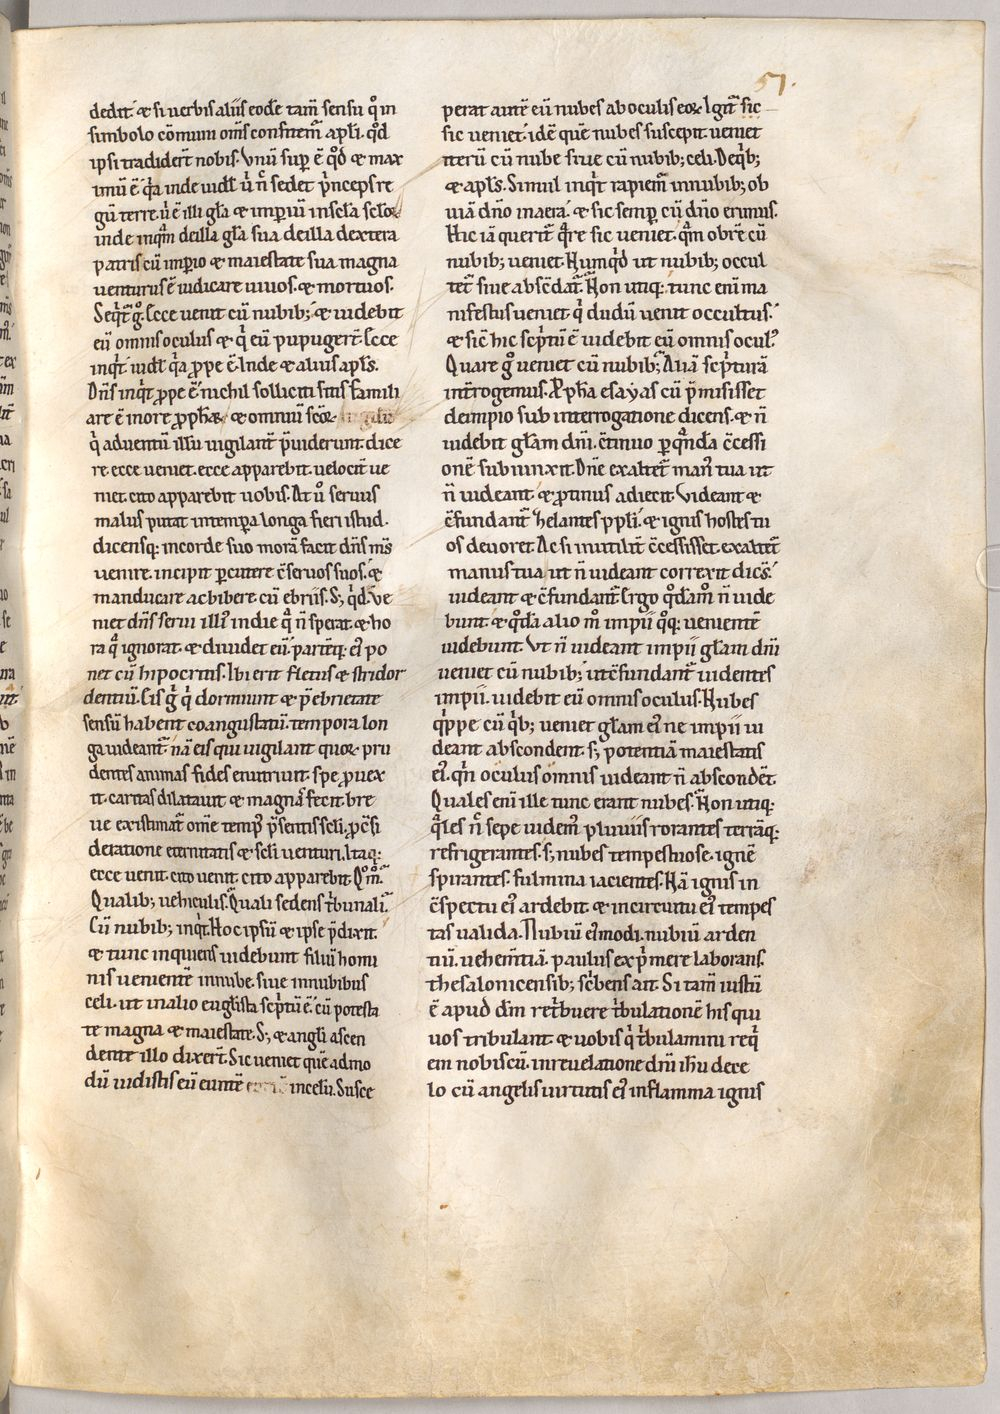 57.
dedit. & si uerbis aliis eodē tam̄ sensu q̊ in
simbolo cōmuni om̄s confitem̄ apl̄i. q̊d
ipsi tradider̄t nobis. Vnū sup̄ ē q̊d & max
imū ē q̄a inde uidl̄ ů n̄c sedet p̄nceps re
gū terre. ů ē illi gl̄a & imperiū in scl̄a scl̄oꝝ
inde inq̄m de illa gl̄a sua de illa dextera
patris cū imp̄io & maiestate sua magna
uenturus ē iudicare uiuos. & mortuos.
Seq̄t̄ g̊. Ecce uenit cū nubib; & uidebit
eū omnis oculus & q̇ eū pupugert̄. Ecce
inq̇t uidl̄ q̄a ꝓpe ē. Inde & alius apl̄s.
Dn̄s inq̇t ꝓpe ē. nichil solliciti sitis. Famili
are ē in ore ꝓphaꝝ & omniū sc̄oꝝ
q̇ aduentū illiu uigilant̄ p̄uiderunt. dice
re. ecce ueniet. ecce apparebit. uelocit̄ ue
niet. cito apparebit uobis. At ů seruus
malus putat in temp̄a longa fieri istud.
dicensq; in corde suo morā facit dn̄s m̄s
uenire. incipit p̄cutere c̄seruos suos. &
manducare ac bibere cū ebriis. S; q̇d. Ve
niet dn̄s serui illi' in die q̄ n̄ sperat. & ho
ra q̄ ignorat. & diuidet eū. partēq; ei' po
net cū hipocritis. Ibi erit fletus & stridor
dentiū. Eis g̊ q̇ dormiunt & p̄ ebrietate
sensū habent coangustatū. tempora lon
ga uideant̄. nā eis qui uigilant quoꝝ pru
dentes animas fides enutriuit. spe ꝓuex
it. caritas dilatauit & magnā fecit. bre
ue existimat̄ om̄e temp' p̄sentis sc̄li. ꝓ c̄si
deratione eternitatis & sc̄li uenturi. Itaq;
ecce uenit. cito uenit. cito apparebit. Q̊m̊.
Qualib; uehiculis. Quali sedens tb̄unali.
Cū nubib; inq̇t. Hoc ipsū & ipse p̄dixit.
& tunc inquiens uidebunt filiū homi
nis uenientē in nube. siue in nubibus
celi. ut in alio eugl̄ista sc̄ptū ē. cū potesta
te magna & maiestate. S; & angl̄i ascen
dente illo dixer̄t. Sic ueniet quē admo
dū uidistis eū euntē in celū. Susce
perat autē eū nubes ab oculis eoꝝ. Igit̄ sic
sic ueniet. idē quē nubes suscepit. ueniet
iterū cū nube siue cū nubib; celi. De q̇b;
& apl̄s. Simul inq̇t rapiem̄ in nubib; ob
uiā dn̄o in aera. & sic semp̄ cū dn̄o erimus.
Hic iā querit̄ q̄re sic ueniet. q̄m ob rē cū
nubib; ueniet. Numq̇d ut nubib; occul
tet̄ siue absc̄dat̄. Non utiq;. tunc enī ma
nifestus ueniet q̇ dudū uenit occultus.
& sic̄ hic sc̄ptū ē uidebit eū omnis ocul'.
Quare g̊ ueniet cū nubib;. Aliā sc̄pturā
int̄rogemus. Ꝓpha esayas cū p̄misisset
de impio sub interrogatione dicens. & n̄
uidebit gl̄am dn̄i. c̄tinuo p̄ q̄nda c̄cessi
onē subiunxit. Dn̄e exaltet̄ man' tua ut
n̄ uideant. & ꝓtinus adiecit. Videant &
c̄fundant̄ helantes ppl̄i. & ignis hostes tu
os deuoret. Ac si inutilit̄ c̄cessisset. exaltet̄
manus tua ut n̄ uideant correxit dicēs.
uideant & c̄fundant̄. Ergo q̊dam̊ n̄ uide
bunt. & q̊dā alio m̊ impii q̊q; uenientē
uidebunt. Vt n̄ uideant impii gl̄am dn̄i
ueniet cū nubib; ut c̄fundant̄ uidentes
impii. uidebit eū omnis oculus. Nubes
q̇ppe cū q̇b; ueniet gl̄am ei' ne impii ui
deant abscondent. s; potentiā maiestatis
ei'. q̇n oculus omnis uideant n̄ abscondēt.
Quales enī ille tunc erant nubes. Non utiq;
q̄les n̄c sepe uidem' pluuiis rorantes terrāq;
refrigerantes. s; nubes tempestuose. ignē
spirantes. fulmina iacientes. Nā ignis in
c̄spectu ei' ardebit. & in circuitu ei' tempes
tas ualida. Nubiū ei'modi. nubiū arden
tiū. uehem̄tiā. paulus exp̄mere laborans.
thesalonicensib; sc̄bens ait. Si tam̄ iustū
ē apud dm̄ ret̄buere t̄bulationē his qui
uos tribulant & uobis q̇ t̄bulamini req̇
em nobiscū. in reuelatione dn̄i ih̄u de ce
lo cū angelis uirtutis ei' in flamma ignis